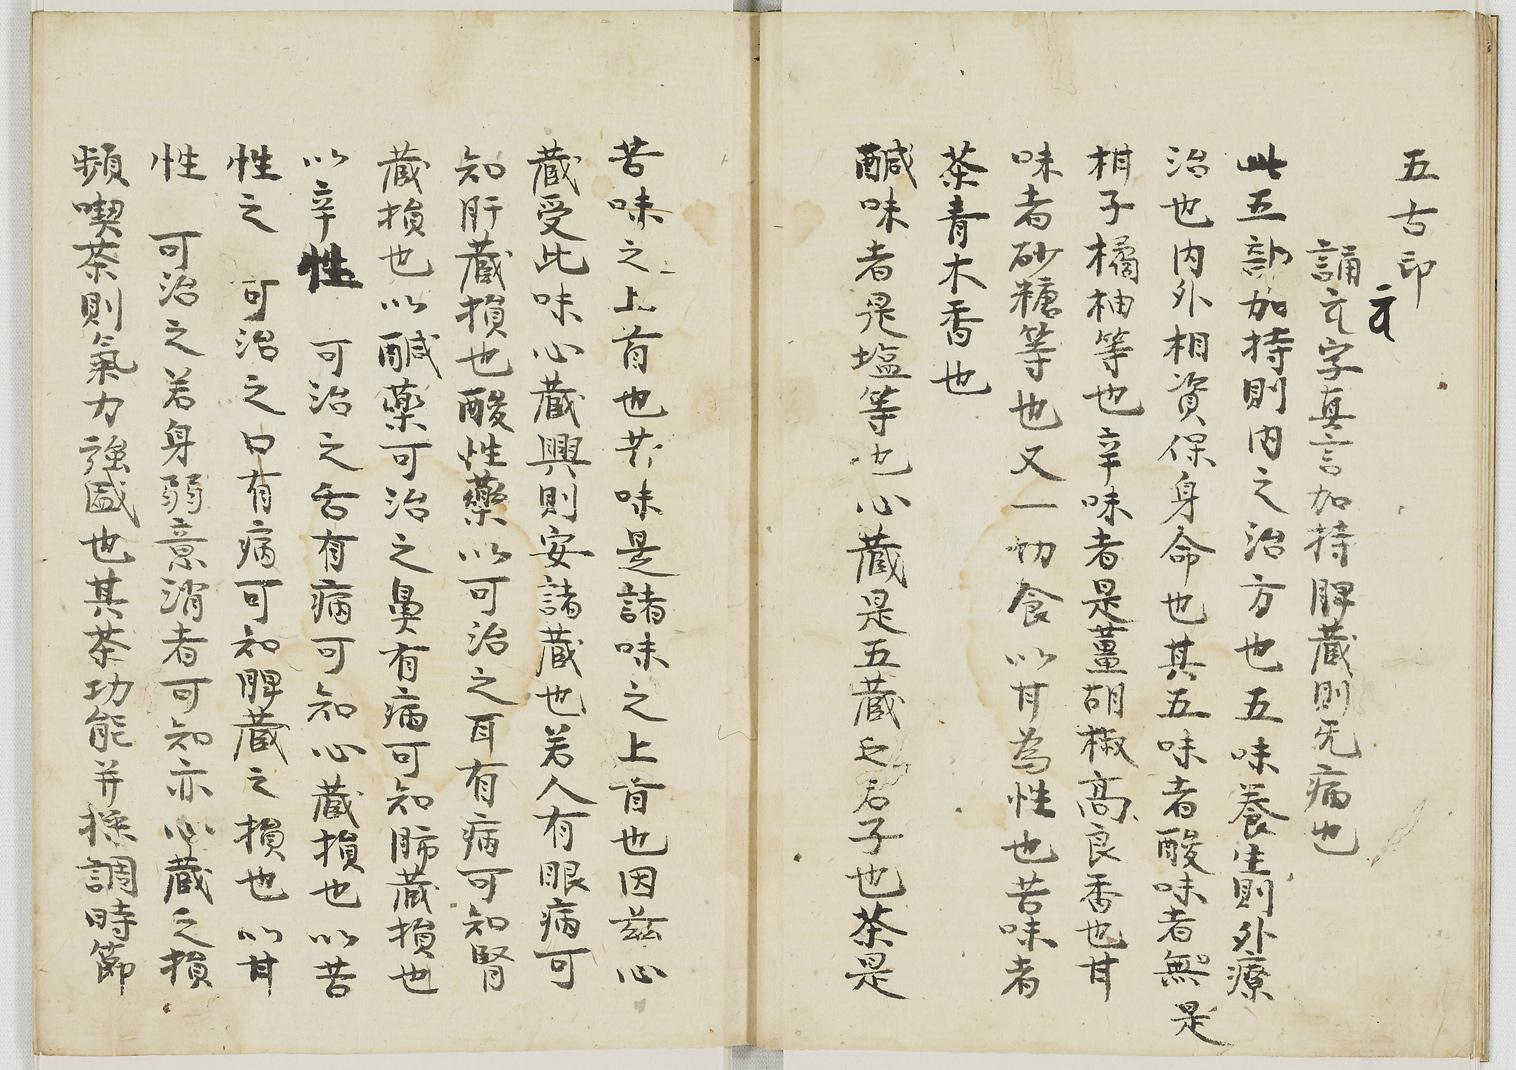 五古印
誦字真言加持脾蔵則无病也
此五部加持則内之治方也五味養生則外療
治也内外相資保身命也其五味者酸味者無是
柑子橘柚等也辛味者是薑胡椒高良香也甘
味者砂糖等也又一切食以甘為性也苦味者
茶青木香也
鹹味者是塩等也心蔵是五蔵之君子也茶是
苦味之上首也苦味是諸味之上首也因茲心
蔵受此味心蔵興則安諸蔵也若人有眼病可
知肝蔵損也酸性藥以可治之耳有病可知腎
蔵損也以鹹藥可治之鼻有病可知肺蔵損也
以辛性 可治之舌有病可知心蔵損也以苦
性之 可治之口有病可知脾蔵之損也以甘
性 可治之若身弱意消者可知亦心蔵之損
頻喫茶則氣力強盛也其茶功能并採調時節